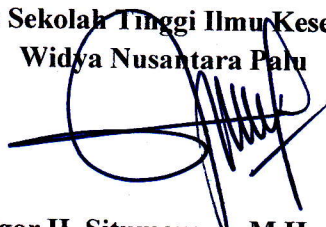 Sekolah Tinggi Ilmu Kese
Widya Nusantara Palu
H. Situmorang M.H